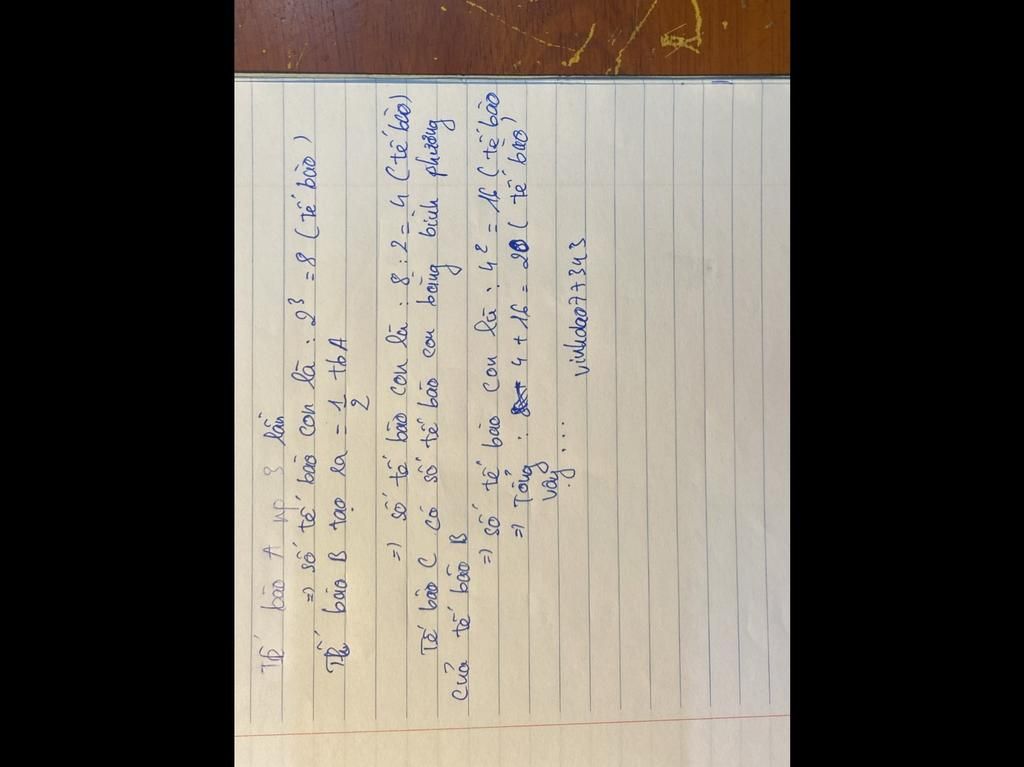 Tế bào A np 3 lần
=) số tế bào con là : 2³ = 8 ( tế bào )
Tế bào B tạo ra = 1/2 tbA
=) số tế bào con là : 8 : 2 = 4 ( tế bào)
Tế bào C có số tế bào con bằng bình phương
của tế bào B
=) số tế bào con là : 4² = 16 ( tế bào
=) Tổng : 4 + 16 = 20 ( tế bào )
vậy ...
vinhdao077343